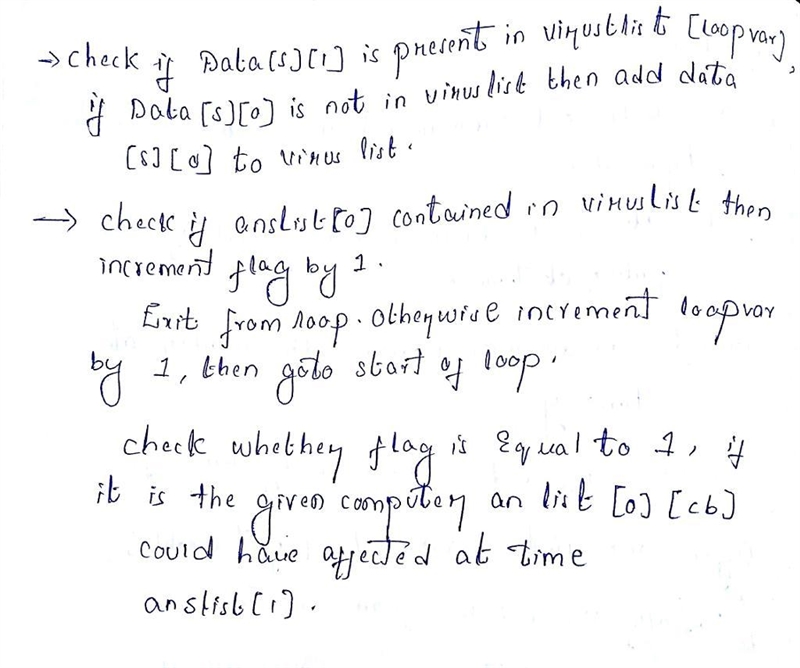 → Check if Data[s][1] is present in viruslist [loopvar],
if Data [s][0] is not in virus list then add data
[s][0] to virus list.
→ check if anslist[0] contained in viruslist then
increment flag by 1.
Exit from loop. Otherwise increment loopvar
by 1, then goto start of loop.
check whether flag is Equal to 1, if
it is the given computer an list [0] [cb]
could have affected at time
anslist[1].